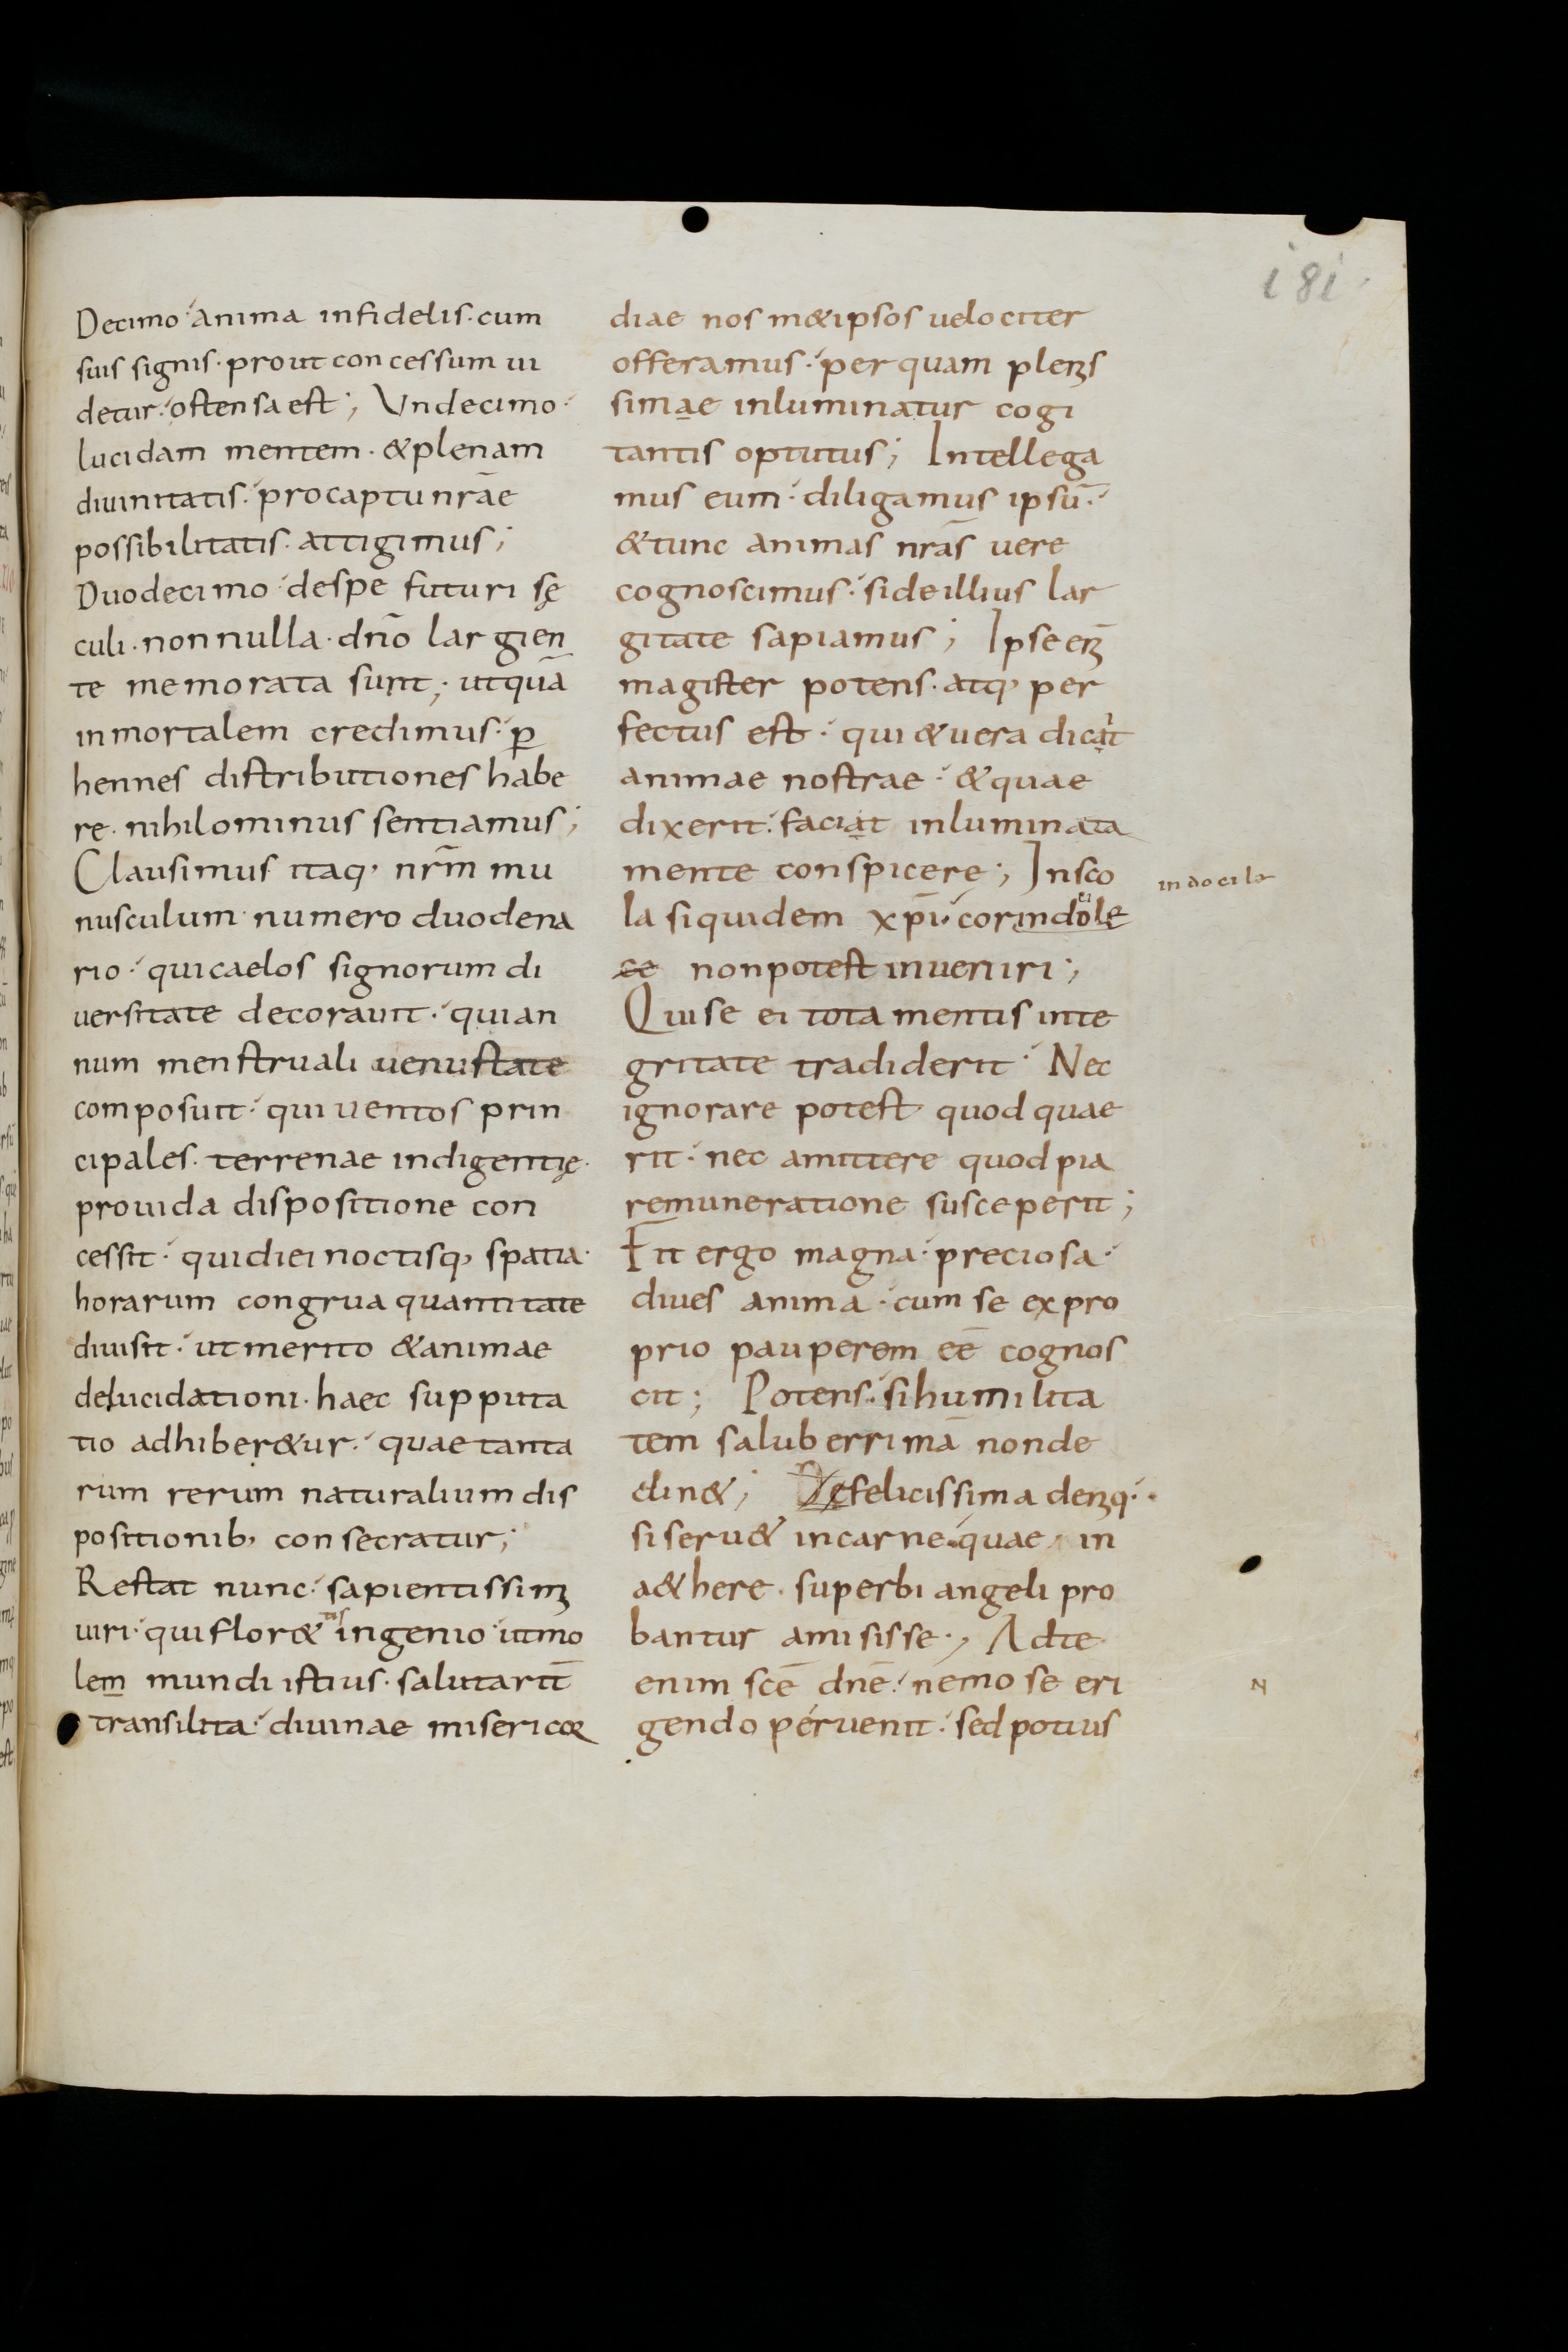 i8i
Decimo anima infidelis· cum
suis signis· prout concessum ui
detur· ostensa est; Undecimo·
lucidam mentem· & plenam
diuinitatis· pro captu nrae
possibilitatis· attigimus;
Duodecimo· de spe futuri sę
culi· non nulla· dno largien
te memorata sunt; ut quā
inmortalem credimus· ꝑ
hennes distributiones habe
re· nihilominus sentiamus;
Clausimus itaq, nrm̄ mu
nusculum· numero duodena
rio· qui caelos signorum di
uersitate decorauit· qui an
num menstruali uenustate
composuit· qui uentos prin
cipales· terrenae indigentię·
prouida dispositione con
cessit· qui diei noctisq, spatia·
horarum congrua quantitate
diuisit· ut merito & animae
delucidationi· haec supputa
tio adhiber&ur· quae tanta
rum rerum naturalium dis
positionib, consecratur;
Restat nunc· sapientissimi
uiri· qui flor&is ingenio· ut mo
lem mundi istius· salutarit̄
transilita· diuinae misericor
diae nosm&ipsos uelociter
offeramus· per quam plenis
simae inluminatur cogi
tantis optutus; Intellega
mus eum· diligamus ipsū·
& tunc animas nrās uere
cognoscimus· si de illius lar
gitate sapiamus; Ipse eni
magister potens· atq, per
fectus est· qui & uera dicat
animae nostrae· & quae
dixerit· faciat inluminata
mente conspicere; In sco
la siquidem xp̄i· cor indocile
ce non potest inueniri;
Qui se ei tota mentis inte
gritate tradiderit· Nec
ignorare potest quod quae
rit· nec amittere quod pia
remuneratione susceperit;
Fit ergo magna· preciosa·
diues anima· cum se ex pro
prio pauperem eē cognos
cit; Potens· si humilita
tem saluberrimā non de
din&; De felicissima deniq·
si seru& in carne· quae in
a&here· superbi angeli pro
bantur amisisse; Ad te
enim scē dnē· nemo se eri
gendo peruenit· sed potius
indocile